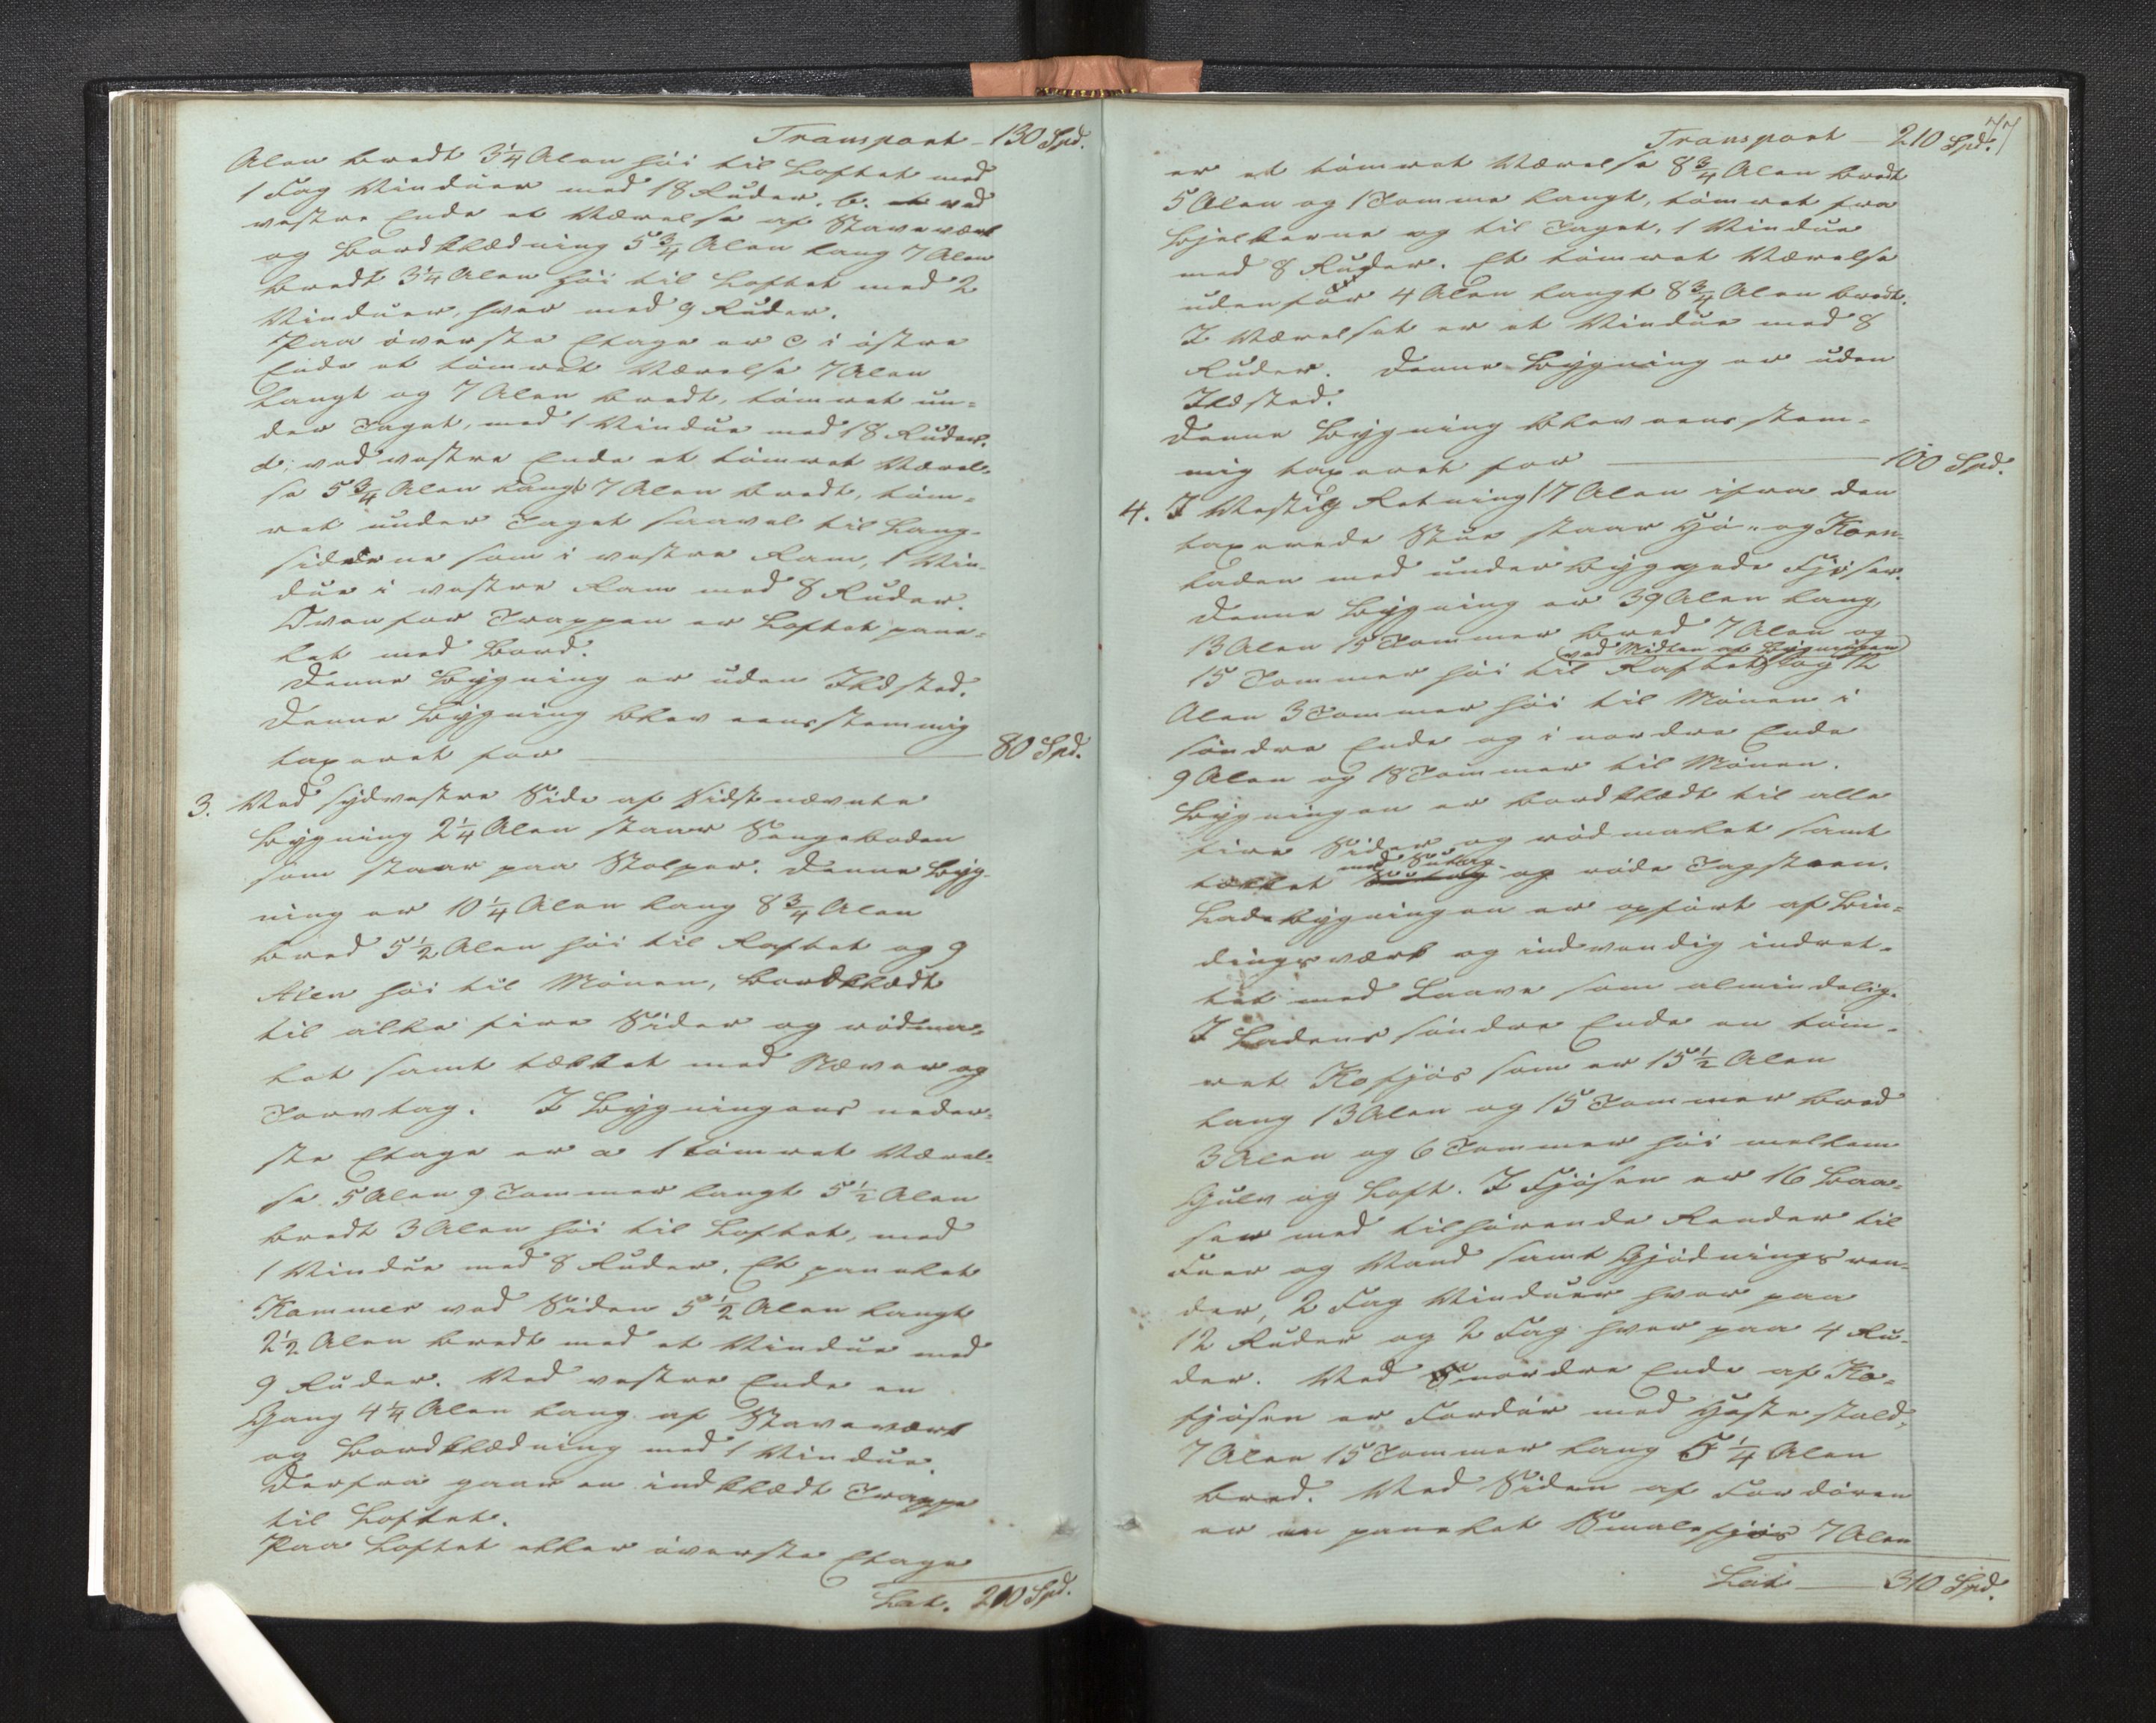 Transport - 130 Spd.
Alen bredt 3¼ Alen høi til Loftet med
1 Fag Vinduer med 18 Ruder. b. ved
vestre Ende et Værelse af Stavværk
og Bordklædning 5¾ Alen lang 7 Alen
bredt 3¼ Alen høi til Loftet med 2
Vinduer, hver med 9 Ruder.
Paa øverste Etage er c i østre
Ende et tømret Værelse 7 Alen
langt og 7 Alen bredt, tømret un-
der Taget, med 1 Vindue med 18 Ruder.
d: ved vestre Ende et tømret Værel-
se 5¾ Alen langt 7 Alen bredt, tøm-
ret under Taget saavel til Lang-
siderne som i vestre Ram, 1 Vin-
due i vestre Ram med 8 Ruder.
Ovenfor Trappen er Loftet pane-
let med Bord.
Denne Bygning er uden Ildsted.
Denne Bygning blev eensstemmig
taxeret for — 80 Spd.
3. Ved sydvestre Side af sidstnævnte
Bygning 2¼ Alen staar Sengeboden
som staar paa Stolper. Denne Byg-
ning er 10¼ Alen lang 8¾ Alen
bred 5½ Alen høi til Raftet og 9
Alen høi til Mønen, bordklædt
til alle fire Sider og rødma-
let samt tækket med Næver og
Torvtag. I Bygningens neder-
ste Etage er a 1 tømret Værel-
se 5 Alen 9 Tommer langt 5½ Alen
bredt 3 Alen høi til Loftet, med
1 Vindue med 8 Ruder. Et panelet
Kammer ved Siden 5½ Alen langt
2½ Alen bredt med et Vindue med
9 Ruder. Ved vestre Ende en
Gang 4¼ Alen lang af Stavværk
og Bordklædning med 1 Vindue.
Derfra gaar en indklædt Trappe
til Loftet.
Paa Loftet eller øverste Etage
Lat. 210 Spd.
77
Transport — 210 Spd.
er et tømret Værelse 8¾ Alen bredt
5 Alen og 1 Tomme langt, tømret fra
Bjelkerne og til Taget, 1 Vindue
med 8 Ruder. Et tømret Værelse
udenfor 4 Alen langt 8¾ Alen bredt.
I Værelset er et Vindue med 8
Ruder. Denne Bygning er uden
Ildsted.
Denne Bygning blev eensstem-
mig taxeret for — 100 Spd.
4. I Vestlig Retning 17 Alen ifra den
taxerede Stue staar Hø- og Korn-
laden med underbyggede Fjøser.
Denne Bygning er 39 Alen lang
13 Alen 15 Tommer bred 7 Alen og
(ved Midten af Bygningen)
15 Tommer høi til Raftet og 12
Alen 3 Tommer høi til Mønen i
søndre Ende og i nordre Ende
9 Alen og 18 Tommer til Mønen.
Bygningen er bordklædt til alle
fire Sider og rødmalet samt
med Sutag
tækket og røde Tagsteen.
Ladebygningen er opført af Bin-
dingsværk og indvendig indret-
tet med Laave som almindelig.
I Ladens søndre Ende en tøm-
ret Kofjøs som er 15½ Alen
lang 13 Alen og 15 Tommer bred
3 Alen og 6 Tommer høi mellem
Gulv og Loft. I Fjøsen er 16 Baa-
ser med tilhørende Render til
Foer og Vand samt Gjødningsren-
der, 2 Fag Vinduer hver paa
12 Ruder og 2 Fag hver paa 4 Ru-
der. Ved nordre Ende af Ko-
fjøsen er Fordør med Hestestald,
7 Alen 15 Tommer lang 5¼ Alen
bred. Ved Siden af Fordøren
er en panelet Smalefjøs 7 Alen
Lat — 310 Spd.